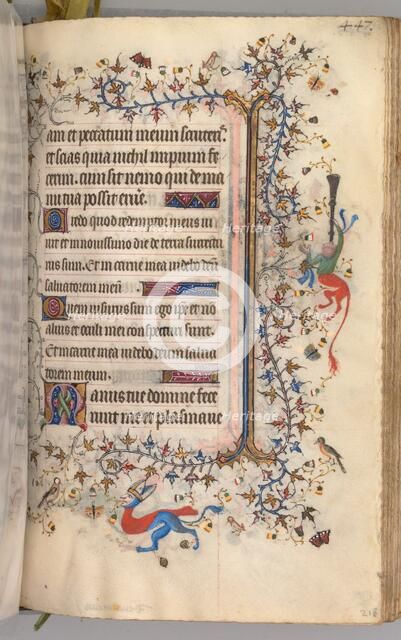 447.
am et peccatum meum scruteris
et scias quia nichil impium fe
cerim. cum sit nemo qui de ma
nu tua possit erue.
Credo quod redemptor meus ui
uit et in nouissimo die de terra surrectu
rus sum. Et in carne mea uidebo deu
saluatorem meu
Quem uisurus sum ego ipse et no
alius et oculi mei conspecturi sunt.
Et in carne mea uidebo deum salua
torem meum.
Manus tue domine fece
runt me et plasmaue
heritage
Heritage
Images
218